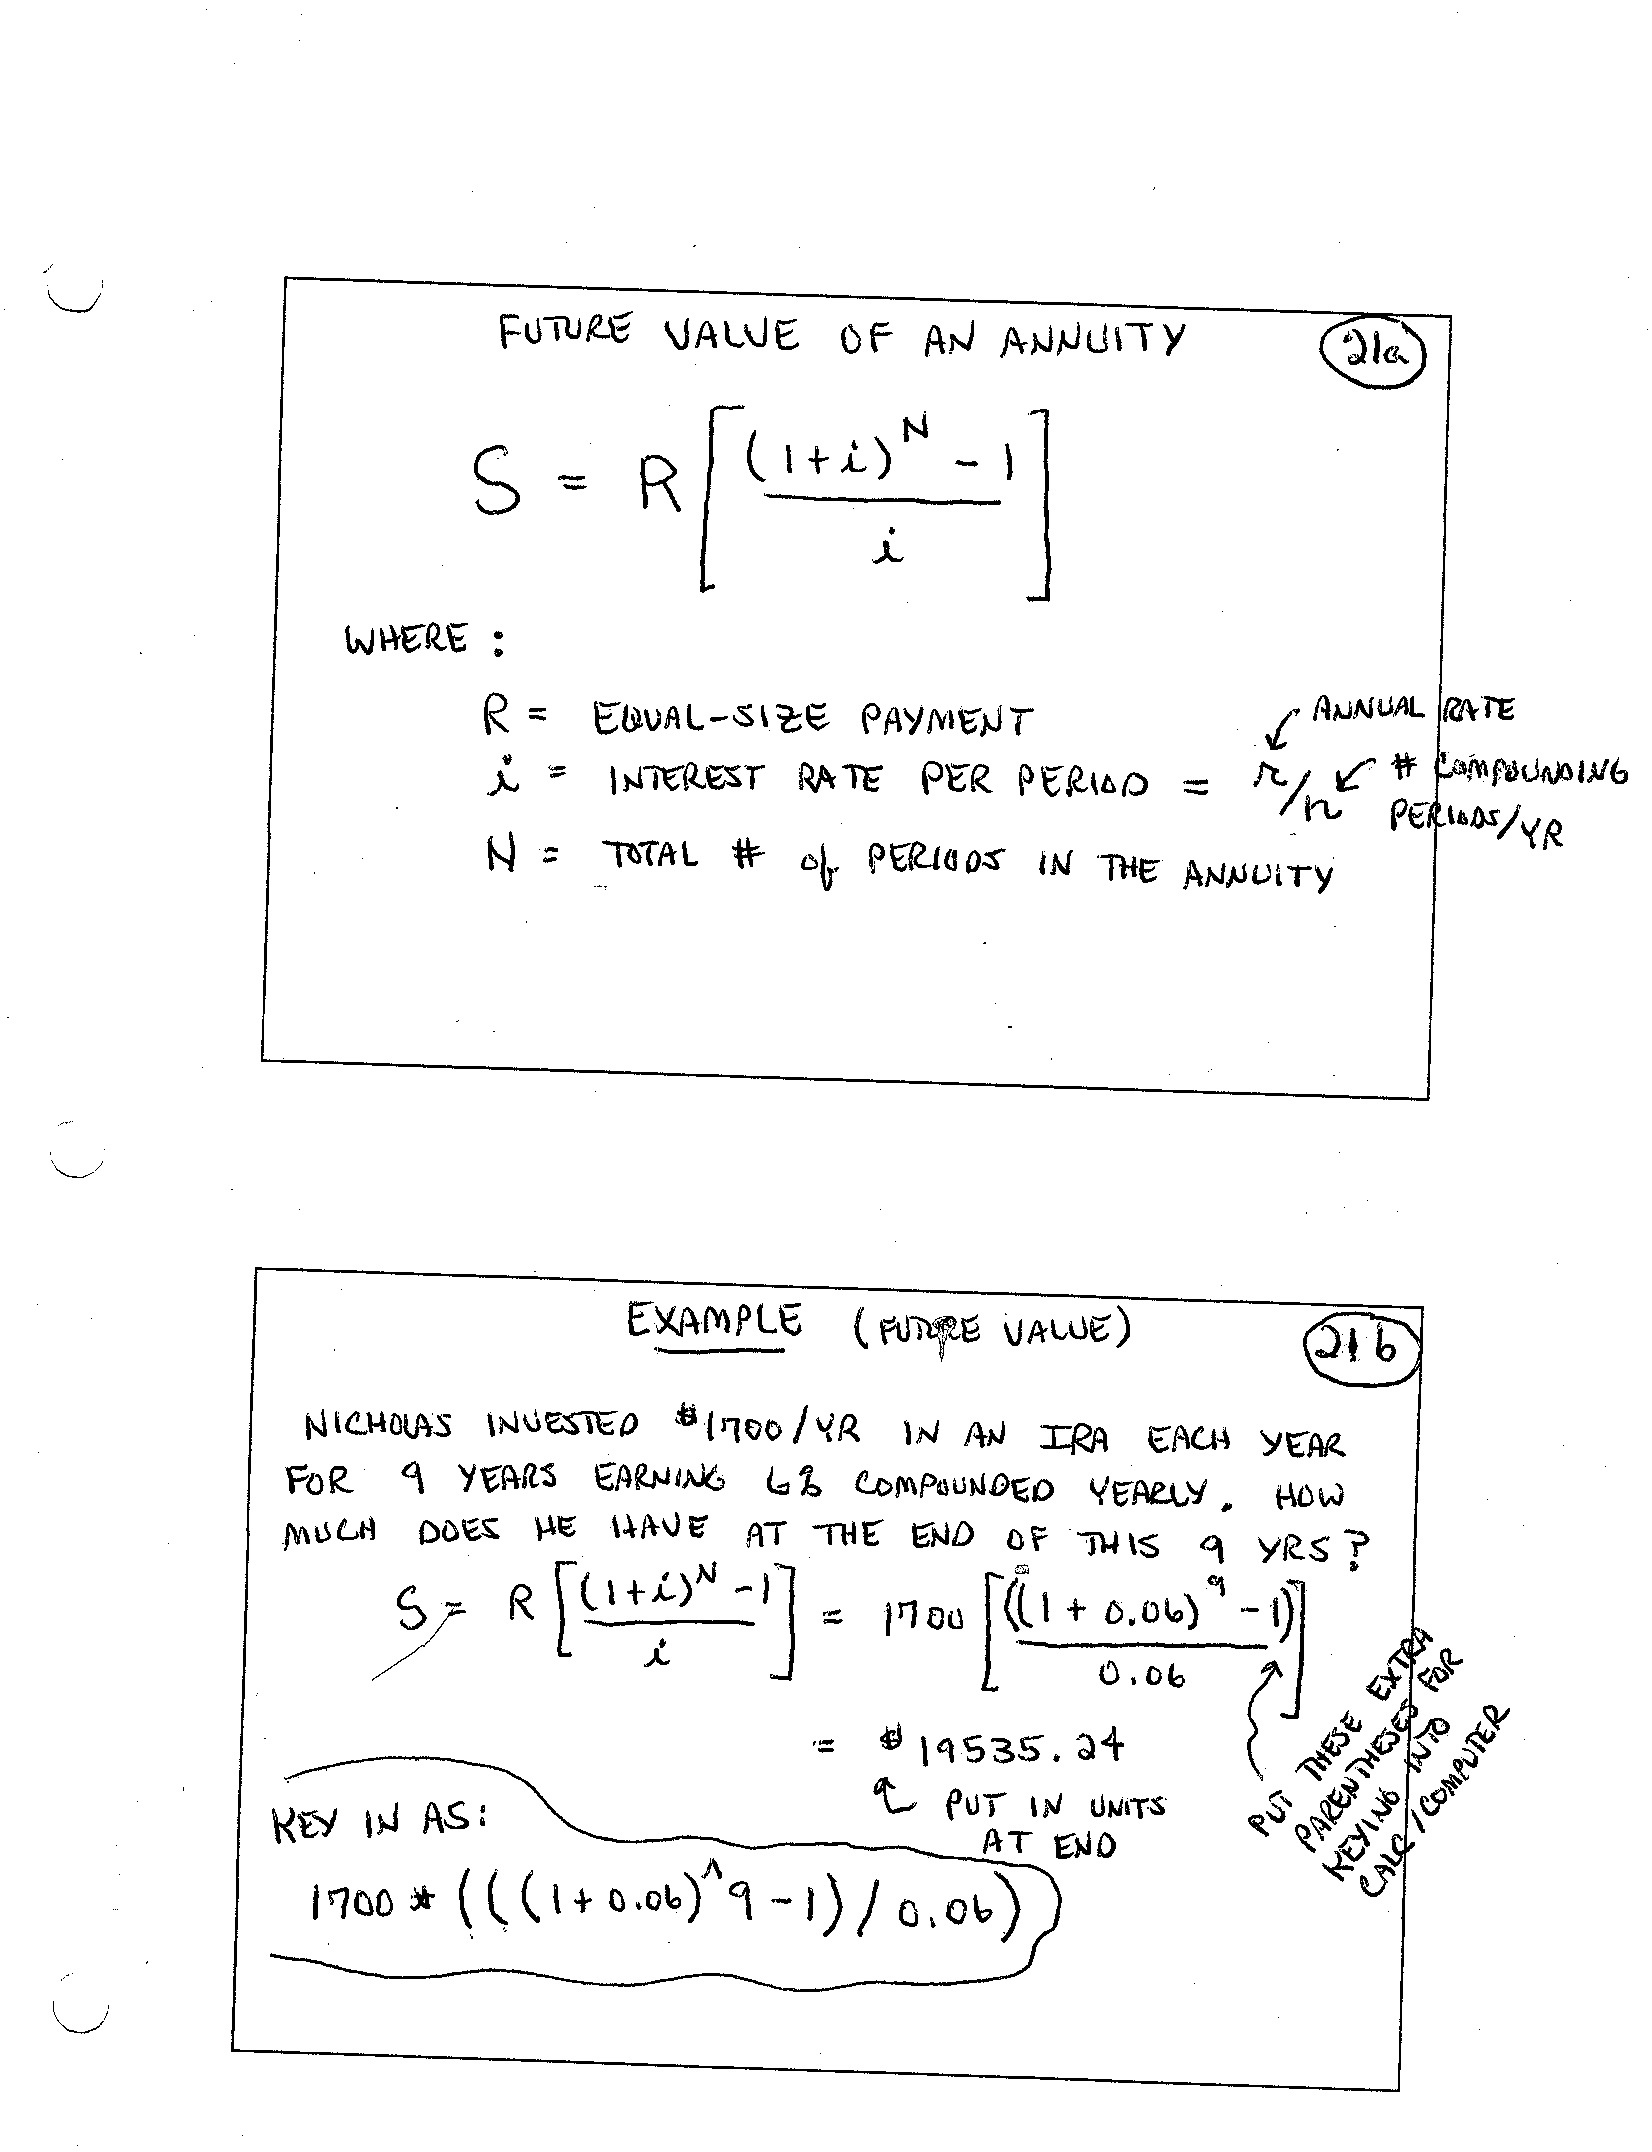 FUTURE VALUE OF AN ANNUITY
21a
S = R [ ((1+i)^N - 1) / i ]
WHERE:
R = EQUAL-SIZE PAYMENT
ANNUAL RATE
i = INTEREST RATE PER PERIOD = r/n
# COMPOUNDING
PERIODS/YR
N = TOTAL # of PERIODS IN THE ANNUITY
EXAMPLE (FUTURE VALUE)
21b
NICHOLAS INVESTED $1700/YR IN AN IRA EACH YEAR
FOR 9 YEARS EARNING 6% COMPOUNDED YEARLY. HOW
MUCH DOES HE HAVE AT THE END OF THIS 9 YRS?
S = R [ ((1+i)^N - 1) / i ] = 1700 [ ((1 + 0.06)^9 - 1) / 0.06 ]
= $19535.24
PUT IN UNITS
AT END
PUT THESE EXTRA
PARENTHESES FOR
KEYING INTO
CALC/COMPUTER
KEY IN AS:
1700 * (((1+0.06)^9 - 1) / 0.06)